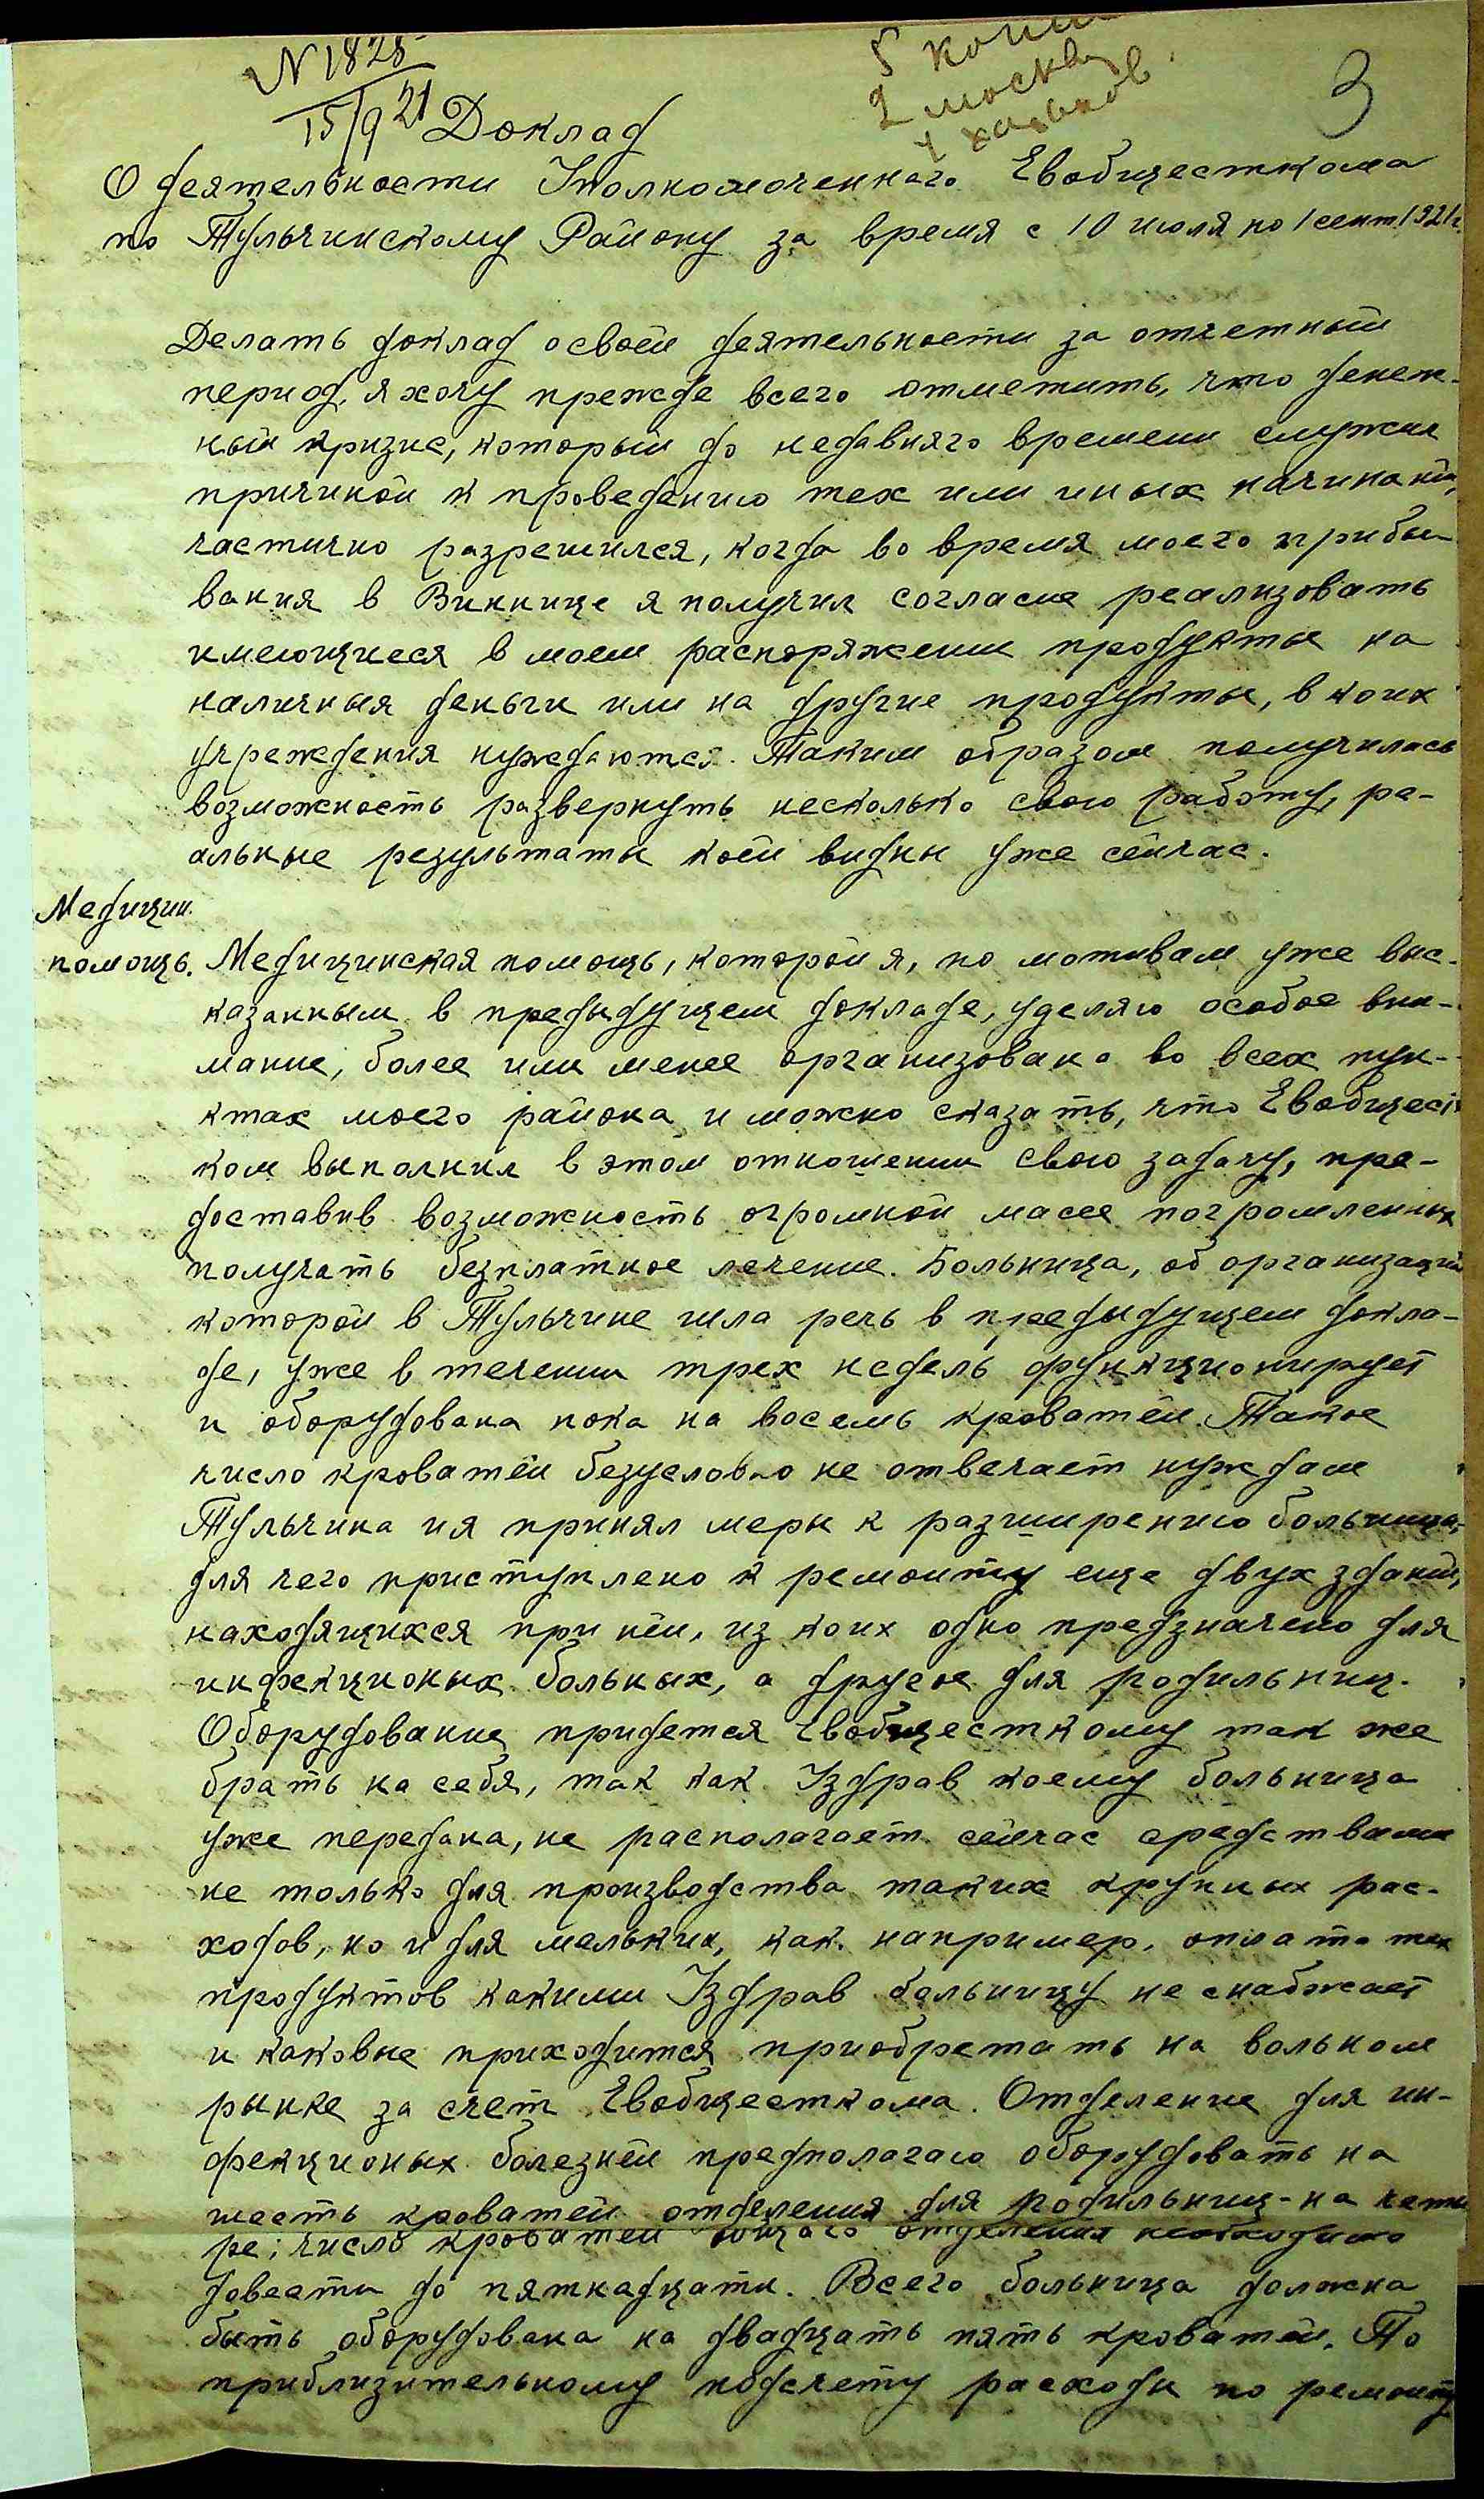 N 1828
15/9 21
5 копий
2 москву
1 харьков
3
Доклад
О деятельности Уполномоченнаго Евобщесткома
по Тульчинскому Району за время с 10 июля по 1 сент. 1921 г.
Делать доклад о своей деятельности за отчетный
период, я хочу прежде всего отметить, что денеж-
ный кризис, который до недавняго времени служил
причиной к проведению тех или иных начинаний,
частично разрешился, когда во время моего прибы-
вания в Виннице я получил согласие реализовать
имеющиеся в моем распоряжении продукты на
наличныя деньги или на другие продукты, в коих
учреждения нуждаются. Таким образом получилась
возможность развернуть несколько свою работу, ре-
альные результаты коей видны уже сейчас.
Медицин.
помощь. Медицинская помощь, которой я, по мотивам уже выс-
казанным в предыдущем докладе, уделяю особое вни-
мание, более или менее организована во всех пун-
ктах моего района и можно сказать, что Евобщест
ком выполнил в этом отношении свою задачу, пре-
доставив возможность огромной массе погромленных
получать безплатное лечение. Больница, об организации
которой в Тульчине шла речь в предыдущем докла-
де, уже в течении трех недель функционирует
и оборудована пока на восемь кроватей. Такое
число кроватей безусловно не отвечает нуждам
Тульчина и я принял меры к разширению больницы,
для чего приступлено к ремонту еще двух зданий,
находящихся при ней, из коих одно предзначено для
инфекционых больных, а другое для родильниц.
Оборудование придется Евобщесткому так же
брать на себя, так как Уздрав коему больница
уже передана, не располагает сейчас средствами
не только для производства таких крупных рас-
ходов, но и для мелких, как например, оплата тех
продуктов какими Уздрав больницу не снабжает
и каковые приходится приобретать на вольном
рынке за счет Евобщесткома. Отделение для ин-
фекционых болезней предполагаю оборудовать на
шесть кроватей отделения для родильниц - на четы
ре; число кроватей общаго отделения необходимо
довести до пятнадцати. Всего больница должна
быть оборудована на двадцать пять кроватей. По
приблизительному подсчету расходы по ремонту